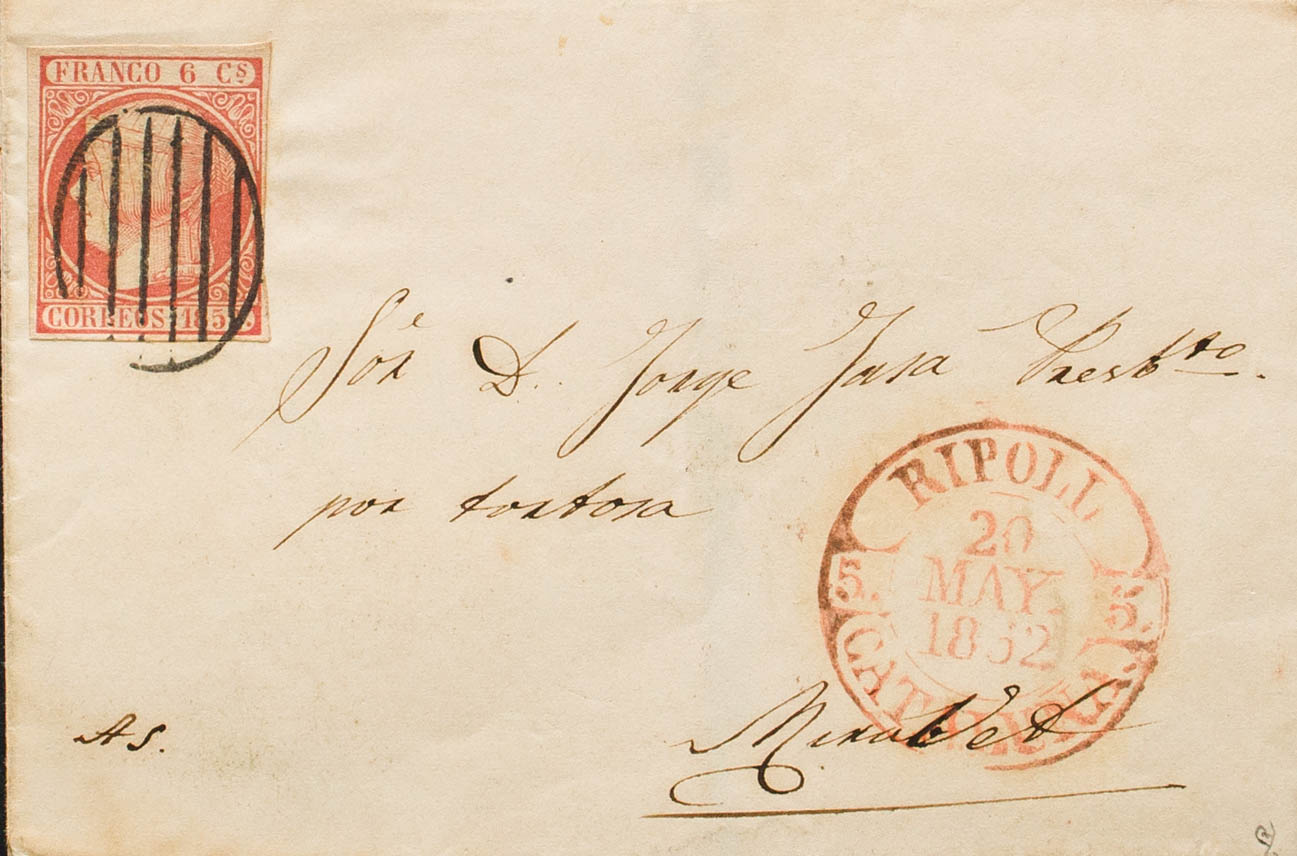 FRANCO 6 Cs.
CORREOS 185
Sór D. Jorge Jasa Presbtro.
por tortosa
RIPOLL
20
MAY.
1852
5. 5.
CATALUÑA
As.
Miravet